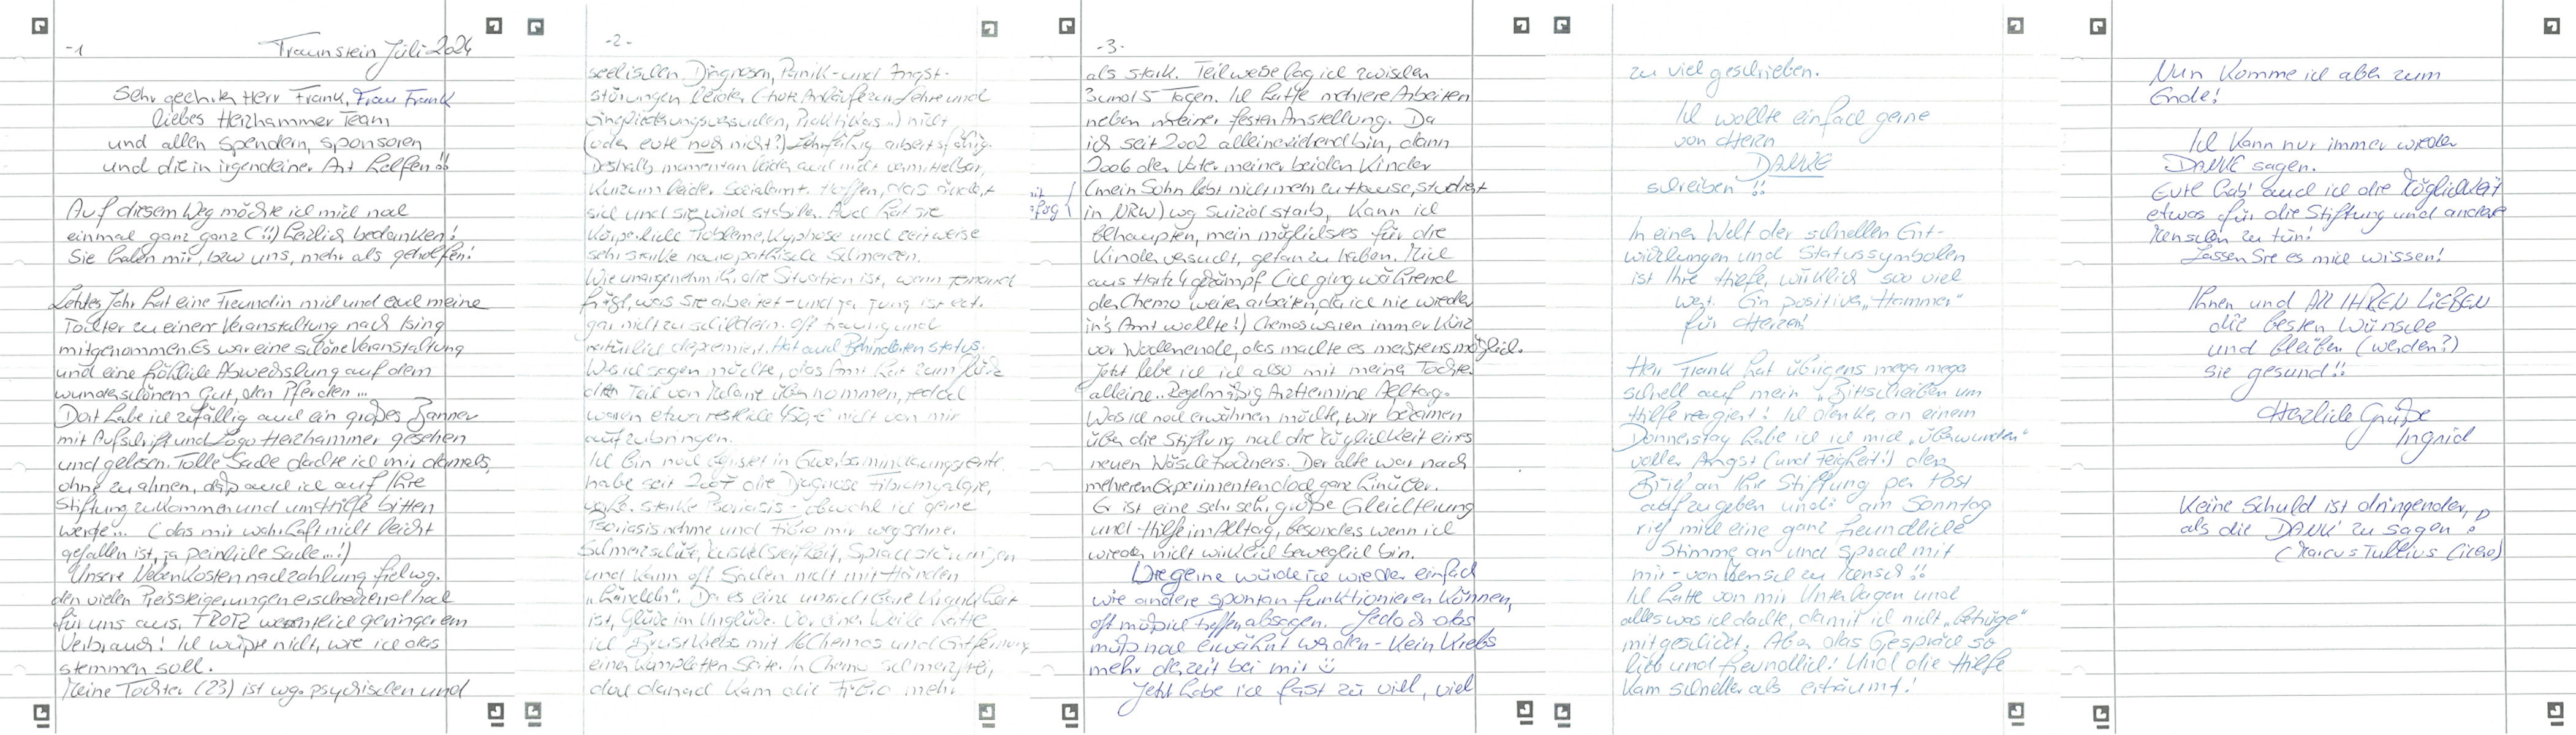 -1
Traunstein Juli 2024
Sehr geehrter Herr Frank, Frau Frank
liebes Herzhammer Team
und allen Spendern, Sponsoren
und die in irgendeiner Art helfen!!
Auf diesem Weg möchte ich mich noch
einmal ganz ganz (!!) herzlich bedanken!
Sie haben mir, bzw uns, mehr als geholfen!
Letztes Jahr hat eine Freundin mich und auch meine
Tochter zu einer Veranstaltung nach Ising
mitgenommen. Es war eine schöne Veranstaltung
und eine fröhliche Abwechslung auf dem
wunderschönem Gut, den Pferden ...
Dort habe ich zufällig auch ein großes Banner
mit Aufschrift und Logo Herzhammer gesehen
und gelesen. Tolle Sache dachte ich mir damals,
ohne zu ahnen, daß auch ich auf Ihre
Stiftung zukommen und um Hilfe bitten
werde... (das mir wahrhaft nicht leicht
gefallen ist, ja peinliche Sache...!)
Unsere Nebenkostennachzahlung fiel wg.
den vielen Preissteigerungen erschreckend hoch
für uns aus, TROTZ wesentlich geringerem
Verbrauch! Ich wußte nicht, wie ich das
stemmen soll.
Meine Tochter (23) ist wg. psychischen und
-2-
seelischen Diagnosen, Panik- und Angst-
störungen leider (trotz Anläufe zur Lehre und
Eingliederungsversuchen, Praktikas..) nicht
(oder eute noch nicht?) arbeitsfähig.
Deshalb momentan leider auch nicht vermittelbar,
Kurzum leider Sozialamt. Hoffen, das ändert
sich und sie wird stabiler. Auch hat sie
körperliche Probleme, Kyphose und zeitweise
sehr starke neuropathische Schmerzen.
Wie unangenehm ihr die Situation ist, wenn jemand
frägt, was sie arbeitet - und ja jung ist ect.
gar nicht zu schildern. Oft traurig und
natürlich depremiert. Hat auch Behindertenstatus.
Was ich sagen möchte, das Amt hat zum Glück
den Teil von Melanie übernommen, jedoch
waren etwa restliche 450,-€ nicht von mir
aufzubringen.
Ich bin noch befristet in Erwerbsminderungsrente,
habe seit 2007 die Diagnose Fibromyalgie,
starke Psoriasis - obwohl ich gerne
Psoriasis nehme und Fibro mir wegsehne.
Schmerzschübe, Muskelsteifheit, Sprachstörungen
und kann oft Sachen nicht mit Händen
"händeln". Da es eine unsichtbare Krankheit
ist, Glück im Unglück. Vor einer Weile hatte
ich Brustkrebs mit 16 Chemos und Entfernung
einer kompletten Seite. In Chemo schmerzfrei,
doch danach kam die Fibro mehr
-3-
als stark. Teilweise lag ich zwischen
3 und 5 Tagen. Ich hatte mehrere Arbeiten
neben meiner festen Anstellung. Da
ich seit 2002 alleinerziehend bin, dann
2006 der Vater meiner beiden Kinder
(mein Sohn lebt nicht mehr zu Hause, studiert
in NRW) wg Suizid starb, kann ich
behaupten, mein möglichstes für die
Kinder versucht, getan zu haben. Mich
aus Hartz 4 gekämpf (ich ging während
der Chemo weiter arbeiten, da ich nie wieder
in's Amt wollte!) Chemos waren immer kurz
vor Wochenende, das machte es meistens möglich.
Jetzt lebe ich ich also mit meiner Tochter
alleine.. Regelmäßig Arzttermine Alltag.
Was ich noch erwähnen möchte, wir bekamen
über die Stiftung noch die Möglichkeit eines
neuen Wäschetrockners. Der alte war nach
mehreren Experimenten doch ganz hinüber.
Er ist eine sehr sehr große Erleichterung
und Hilfe im Alltag, besonders wenn ich
wieder nicht wirklich beweglich bin.
Wie gerne würde ich wieder einfach
wie andere spontan funktionieren können,
oft muß ich treffen absagen. Jedoch das
muß noch erwähnt werden - kein Krebs
mehr derzeit bei mir ☺
Jetzt habe ich fast zu viel, viel
zu viel geschrieben.
Ich wollte einfach gerne
von Herzen
DANKE
schreiben!!
In einer Welt der schnellen Ent-
wicklungen und Statussymbolen
ist Ihre Hilfe, wirklich soo viel
wert. Ein positiver "Hammer"
für Herzen!
Herr Frank hat übrigens mega mega
schnell auf mein "Bittschreiben um
Hilfe reagiert! Ich denke, an einem
Donnerstag habe ich ich mich "überwunden"
voller Angst (und Feigheit!) den
Brief an Ihre Stiftung per Post
aufzugeben und: am Sonntag
rief mich eine ganz freundliche
Stimme an und sprach mit
mir - von Mensch zu Mensch!!
Ich hatte von mir Unterlagen und
alles was ich dachte, damit ich nicht "betrüge"
mitgeschickt. Aber das Gespräch so
lieb und freundlich! Und die Hilfe
kam schneller als erträumt!
Nun komme ich aber zum
Ende!
Ich kann nur immer wieder
DANKE sagen.
Eute hab' auch ich die Möglichkeit
etwas für die Stiftung und andere
Menschen zu tun!
Lassen Sie es mich wissen!
Ihnen und ALL IHREN LIEBEN
die besten Wünsche
und bleiben (werden?)
sie gesund!!
Herzliche Grüße
Ingrid
Keine Schuld ist dringender,
als die DANK zu sagen!
(Marcus Tullius Cicero)